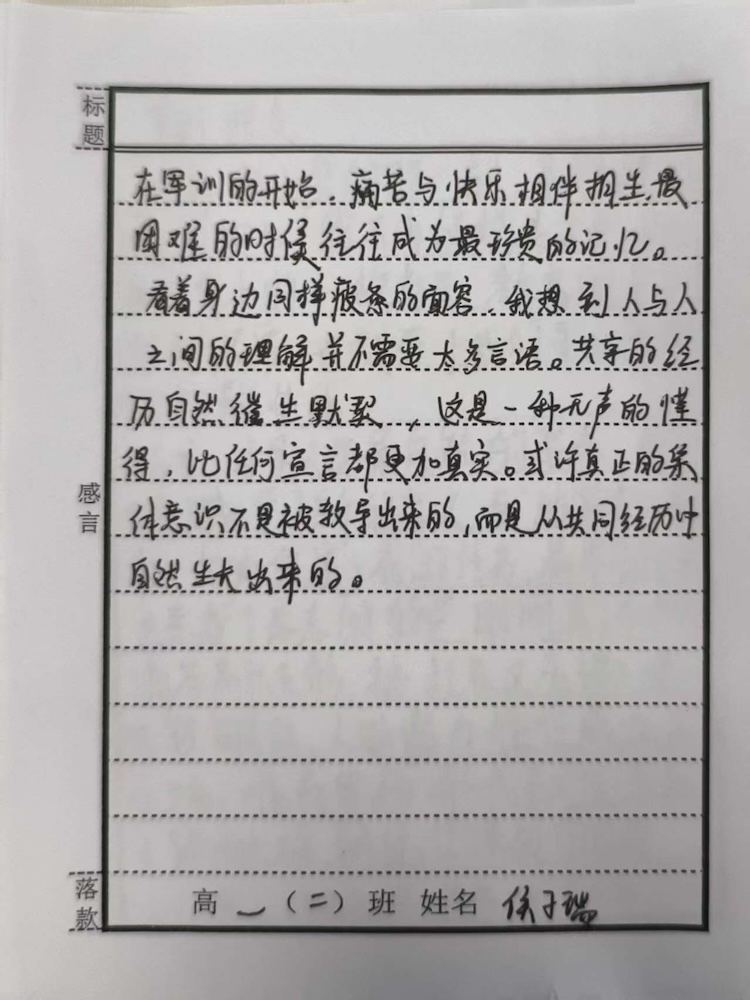 标题
在军训的开始，痛苦与快乐相伴相生，最
困难的时候往往成为最珍贵的记忆。
看着身边同样疲惫的面容，我想到人与人
之间的理解并不需要太多言语。共享的经
历自然催生默契，这是一种无声的懂
得，比任何宣言都更加真实。或许真正的集
体意识不是被教导出来的，而是从共同经历中
自然生长出来的。
感言
落款
高一（二）班 姓名 侯子瑞